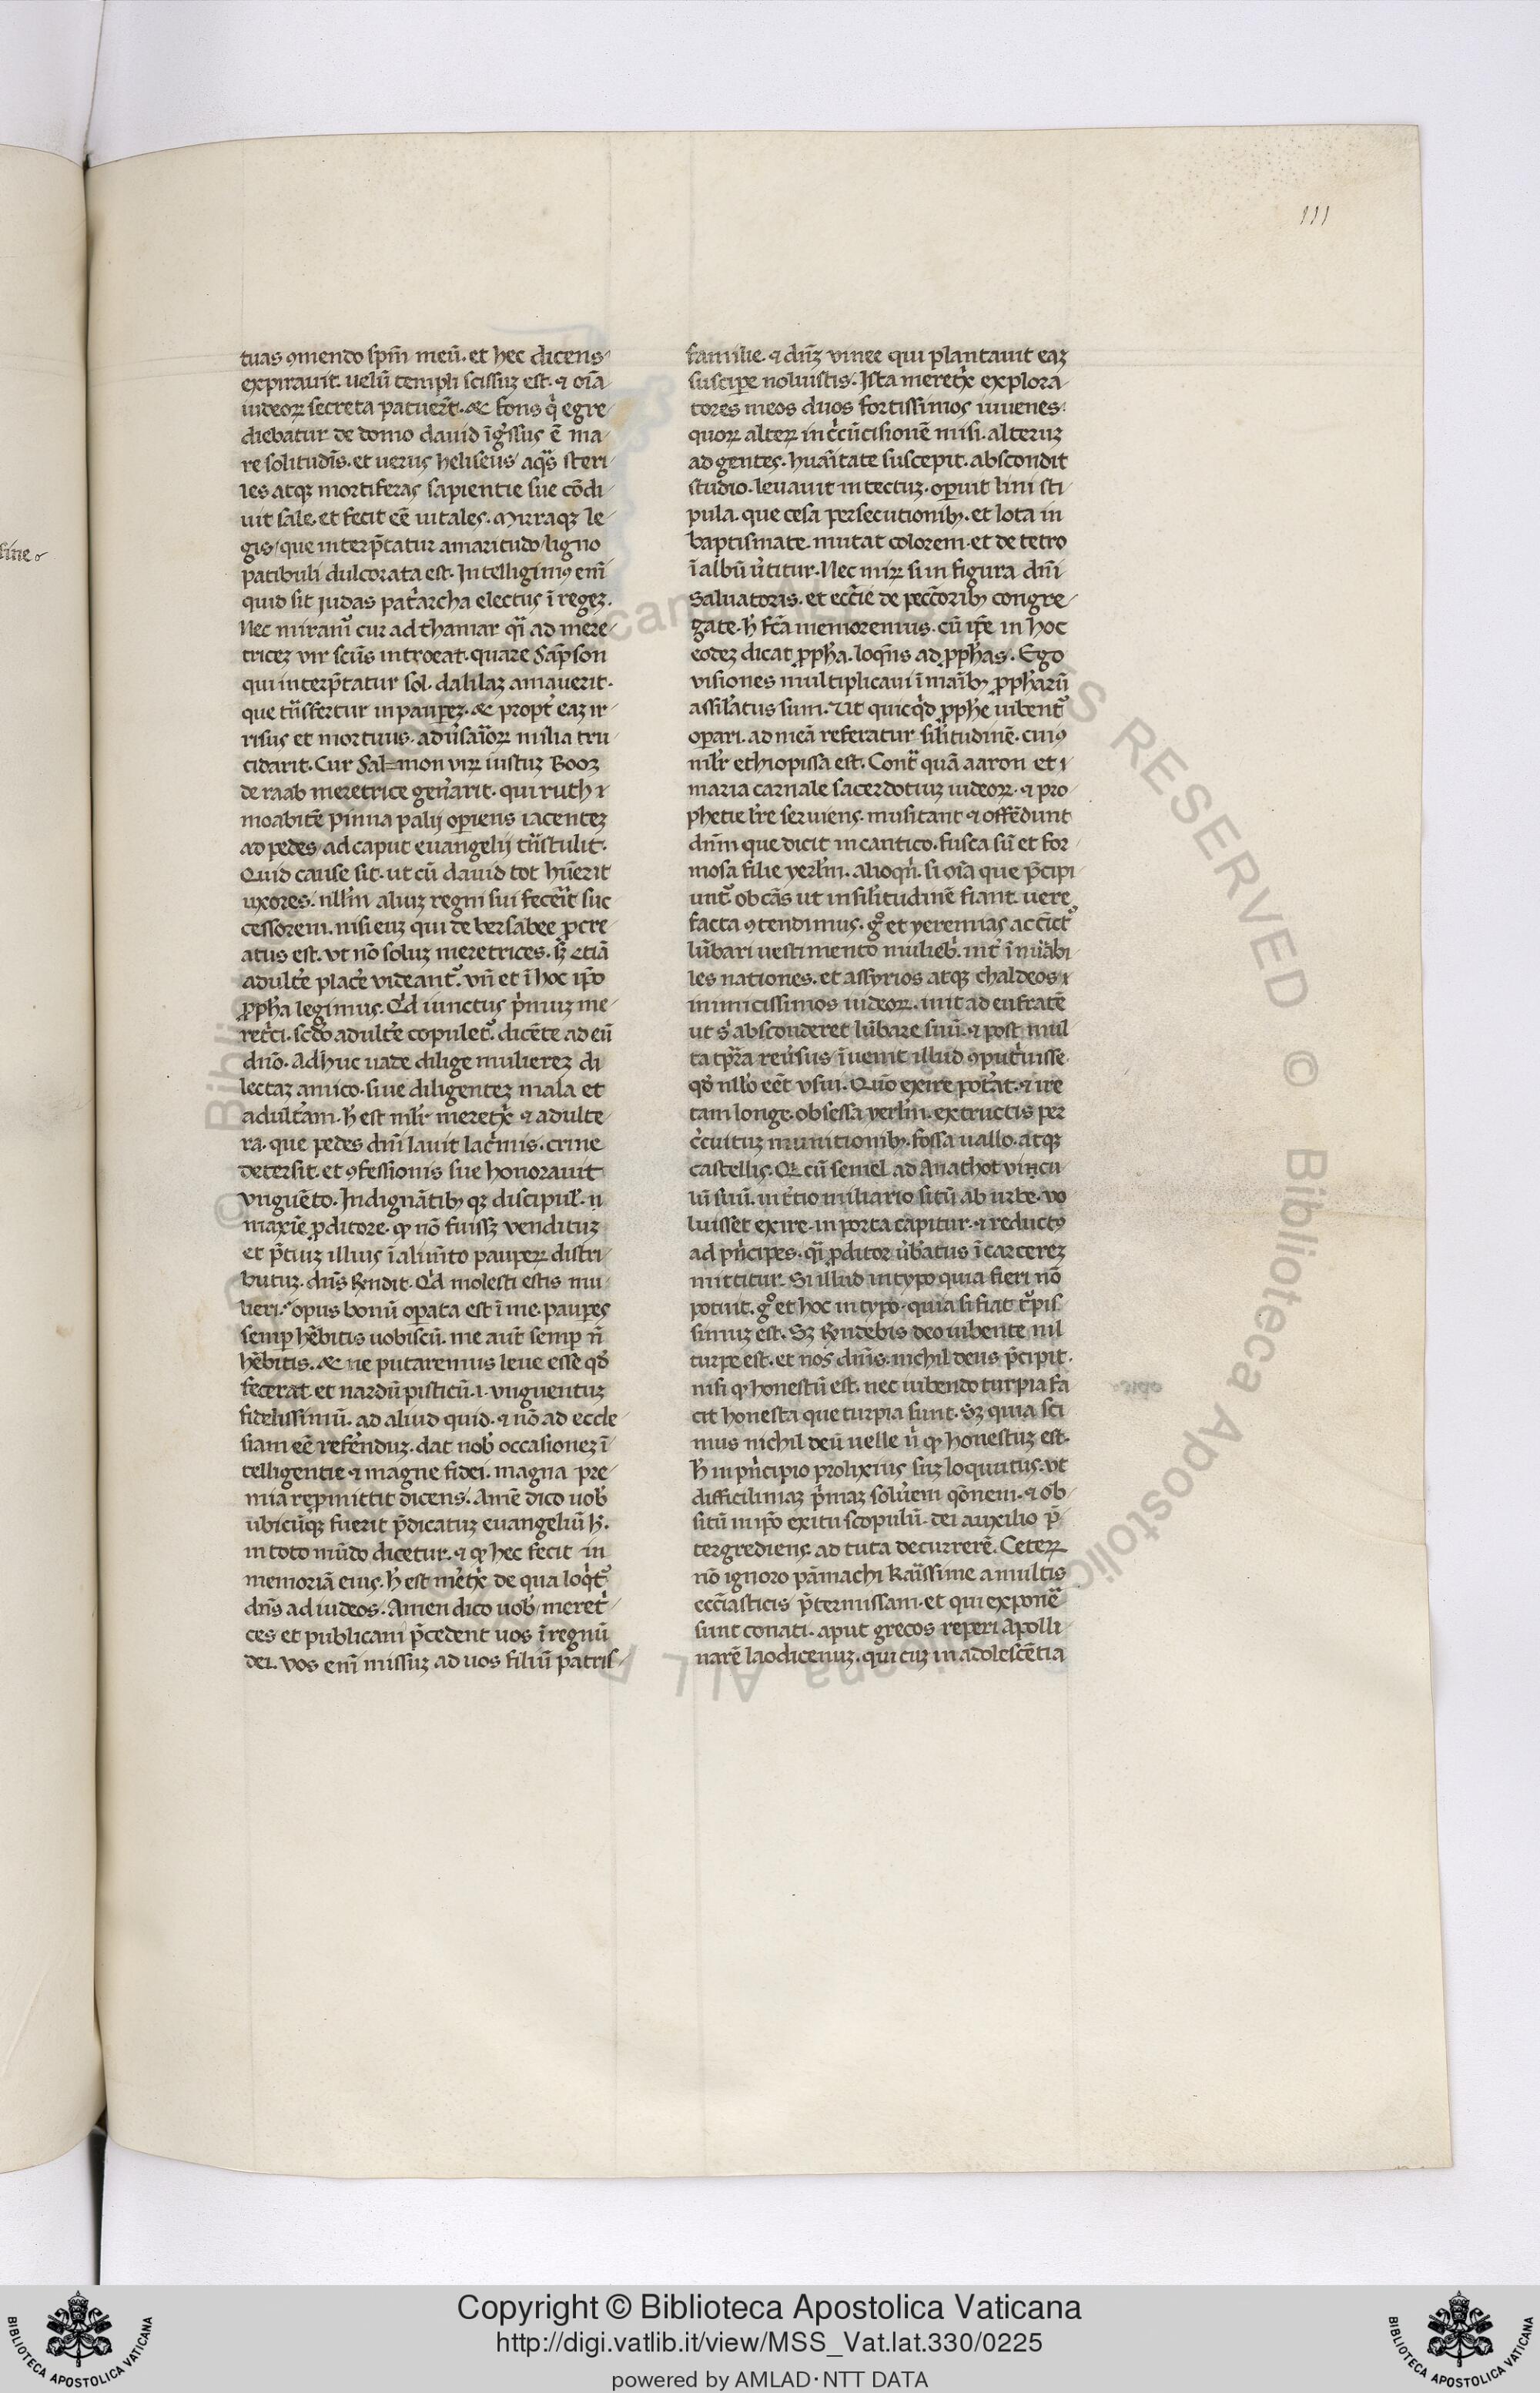 111
sine
tuas ꝯmendo sp̄m meū. et hec dicens
expirauit. uelū templi scissuꝫ est. ⁊ oīa
iudeoꝝ secreta patuer̄t. ac fons q̇ egre
diebatur de domo dauid īgr̄ssus ē ma
re solitudīs. et uerus heliseus aq̄s steri
les atqꝫ mortiferas sapientie sue cōdi
uit sale. et fecit eē uitales. Mirraqꝫ le
gis que interp̄tatur amaritudo ligno
patibuli dulcorata est. Intelligimꝰ em̄
quid sit iudas pat̓archa electus ī regeꝫ.
Nec miramᷣ cur ad thamar q̄i ad mere
triceꝫ vir sc̄us introeat. quare Sāpson
qui interp̄tatur sol. dalilaꝫ amauerit.
que trāsfertur in pauꝑeꝫ. ac propt̓ eaꝫ ir
risus et mortuus. adūsaīoꝝ milia tru
cidarit. Cur Sal=mon viꝝ iustuꝫ Booꝫ
de raab meretrice gen̓arit. qui ruth
moabitē pinna palij oꝑiens iacenteꝫ
ad pedes ad caput euangelij trāstulit.
Quid cause sit. ut cū dauid tot hūerit
uxores. nll̓m aliuꝫ regni sui fecerīt suc
cessorem. nisi euꝫ qui de bersabee ꝓcre
atus est. vt nō soluꝫ meretrices. sꝫ etiā
adult̓e plac̓e videantᷣ. vn̄ et ī hoc ip̄o
ꝓpha legimus. Qd̓ iunctus p̓muꝫ me
ret̓ci. scd̓o adult̓e copuletᷣ. dicēte ad eū
dn̄o. Adhuc uade dilige muliereꝫ di
lectaꝫ amico. siue diligenteꝫ mala et
adult̓am. h̓ est ml̓r meret̓x ⁊ adulte
ra. que pedes dn̄i lauit lac̓mis. crine
detersit. et ꝯfessionis sue honorauit
vnguēto. Indignātibꝫ qꝫ discipul̓. ⁊
maxīe ꝓditore. qꝫ nō fuissꝫ uendituꝫ
et p̄ciuꝫ illius ī alim̄to pauꝑeꝝ distri
butuꝫ. dn̄s rn̄dit. Qd̓ molesti estis mu
lieri. opus bonū oꝑata est ī me. pauꝑes
semꝑ hēbitis uobiscū. me aut̄ semꝑ n̄
hēbitis. ac ne putaremus leue esse qd̓
fecerat. et nardū pisticū .i. vnguentuꝫ
fidelissimū. ad aliud quid. ⁊ nō ad eccle
siam eē refēnduꝫ. dat nob̓ occasioneꝫ ī
telligentie ⁊ magne fidei. magna pre
mia repmittit dicens. Amē dico uob̓
ubicūqꝫ fuerit p̄dicatuꝫ euangeliū h̓.
in toto mūdo dicetur. ⁊ qꝫ hec fecit in
memoriā eius. h̓ est m̓et̓x de qua loq̓tᷣ
dn̄s ad iudeos. Amen dico uob̓ meret̓
ces et publicani p̄cedent uos ī regnū
dei. vos em̄ missuꝫ ad uos filiū patris
familie. ⁊ dn̄ꝫ vinee qui plantauit eaꝫ
susciꝑe noluistis. Ista meret̓x explora
tores meos duos fortissimos iuuenes.
quoꝝ alteꝝ in c̓cūcisionē misi. alteruꝫ
ad gentes. huāitate suscepit. abscondit
studio. leuauit in tectuꝫ. oꝑuit lini sti
pula. que cesa persecutionibꝫ. et lota in
baptismate. mutat colorem. et de tetro
ī albū ūtitur. Nec miꝝ si in figura dn̄i
Saluatoris. et ecc̄ie de pecc̄oribꝫ congre
gate. h̓ fc̄a memoremus. cū ip̄e in hoc
eodeꝫ dicat ꝓpha. loqn̄s ad ꝓphas. Ego
visiones multiplicaui ī maībꝫ ꝓpharū
assil̓atus sum. Vt quicqd̓ ꝓphe iubentᷣ
oꝑari. ad meā referatur sil̓itudinē. cuiꝰ
ml̓r ethiopissa est. Contᷓ quā aaron et
maria carnale sacerdotiuꝫ iudeoꝝ. ⁊ pro
phetie l̓re seruiens. musitant ⁊ offēdunt
dn̄m que dicit in cantico. fusca sū et for
mosa filie yerl̓m. alioqn̄. si oīa que p̄cipi
untᷣ ob cās ut in sil̓itudinē fiant. uere
facta ꝯtendimus. gͦ et yeremias acc̄ictᷣ
lūbari uestimento mulieb̓. int̓ īnūābi
les nationes. et assyrios atqꝫ chaldeos
inimicissimos iudeoꝝ. iuit ad eufratē
ut s̓ absconderet lūbare suū. ⁊ post mul
ta tp̄ra reūsus īuenit illud ꝯput̓uisse.
qd̓ nll̓o eēt vsui. Quō exire pot̓at. ⁊ ire
tam longe. obsessa yerl̓m. extructis per
c̓cuituꝫ munitionibꝫ. fossa uallo. atqꝫ
castellis. Qꝫ cū semel ad Anathot vincu
lū suū. in t̓tio miliario sitū ab urbe. uo
luisset exire. in porta capitur. ⁊ reductꝰ
ad pn̓cipes. q̄i ꝓditor ūb̓atus ī carcereꝫ
mittitur. Si illud in typo quia fieri nō
potuit. gͦ et hoc in typo. quia si fiat tᷣpis
simuꝫ est. Sꝫ rn̄debis deo iubente nil
turpe est. et nos dn̄s. nichil deus p̄cipit.
nisi qꝫ honestū est. nec iubendo turpia fa
cit honesta que turpia sunt. Sꝫ quia sci
mus nichil deū uelle n̓ qꝫ honestuꝫ est.
h̓ in pn̓cipio prolixius suꝫ loquutus. vt
difficilimaꝫ p̓maꝫ solūem qōnem. ⁊ ob
situ in ip̄o exitu scopulū. dei auxilio p̄
tergrediens. ad tuta decurrerē. Ceteꝝ
nō ignoro pāmachi kaīssime a multis
ecc̄iasticis p̄termissam. et qui exponē
sunt conati. aput grecos reperi Apolli
narē laodicenuꝫ. qui cuꝫ in adolescētia
Copyright © Biblioteca Apostolica Vaticana
http://digi.vatlib.it/view/MSS_Vat.lat.330/0225
powered by AMLAD·NTT DATA